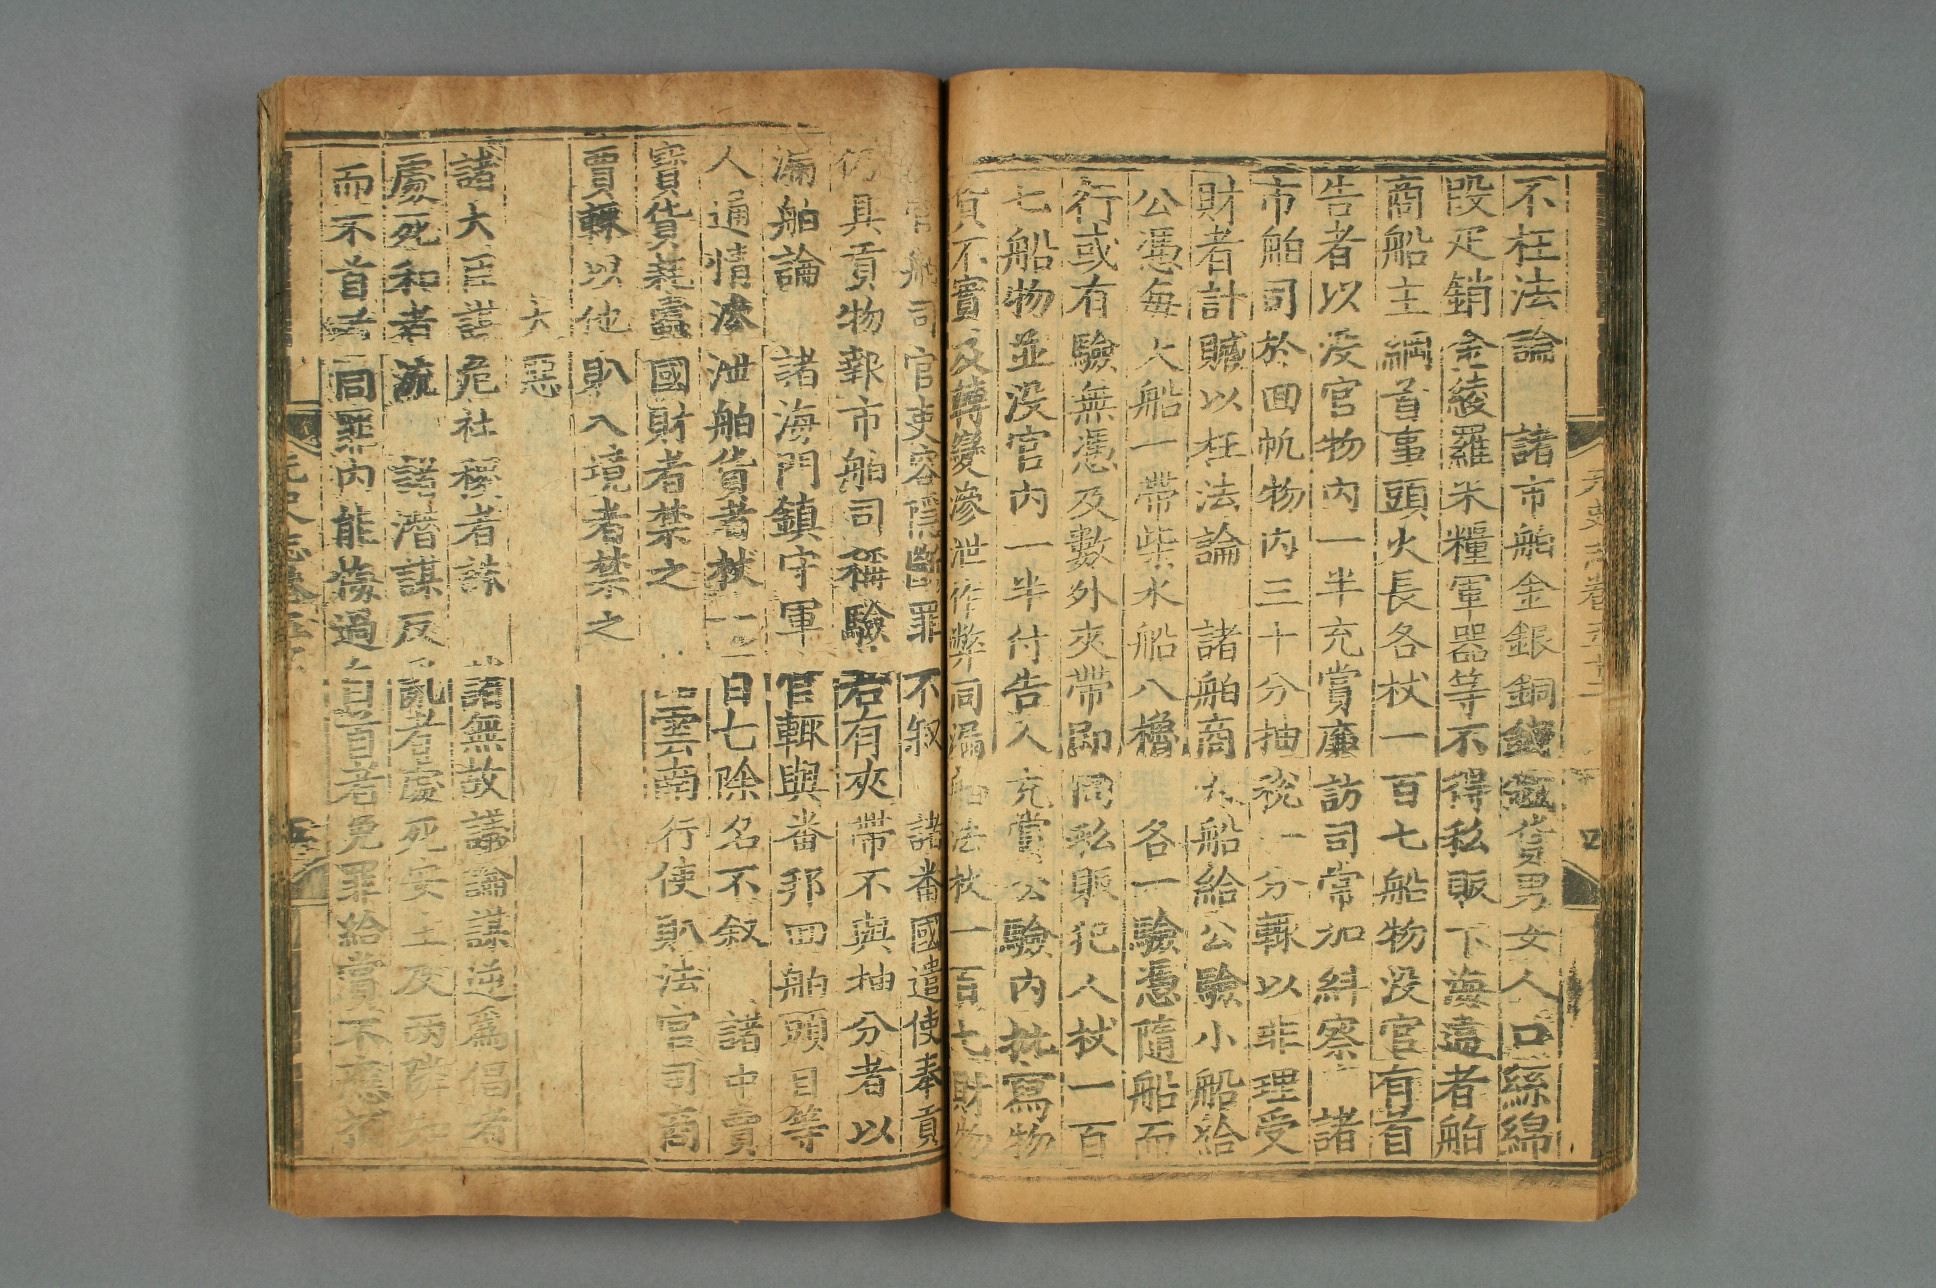 不枉法論 諸市舶金銀銅錢鐵貨男女人口絲綿
段疋銷金綾羅米糧軍器等不得私販下海違者舶
商船主綱首事頭火長各杖一百七船物没官有首
告者以没官物内一半充賞廉訪司常加糾察 諸
市舶司於囬帆物内三十分抽稅一分輙以非理受
財者計贓以枉法論 諸舶商大船給公驗小船給
公憑每大船一帶柴水船八櫓船各一驗憑隨船而
行或有驗無憑及數外夾帶即同私販犯人杖一百
七船物並没官内一半付告人充賞公驗内批寫物
貨不實及轉變滲泄作弊同漏舶法杖一百七財物
官舶司官吏容隱斷罪不叙 諸番國遣使奉貢
仍具貢物報市舶司稱驗若有夾帶不與抽分者以
漏舶論 諸海門鎮守軍官輙與番邦囬舶頭目等
人通情滲泄舶貨者杖一百七除名不叙 諸中賣
寶貨耗蠹國財者禁之 諸雲南行使𧵅法官司商
賈輙以他𧵅入境者禁之
大惡
諸大臣謀危社稷者誅 諸無故議論謀逆爲倡者
處死和者流 諸潜謀反亂者處死安主及两隣知
而不首者同罪内能悔過自首者免罪給賞不應捕
元史志卷五十二 四
元史志卷五十二 五